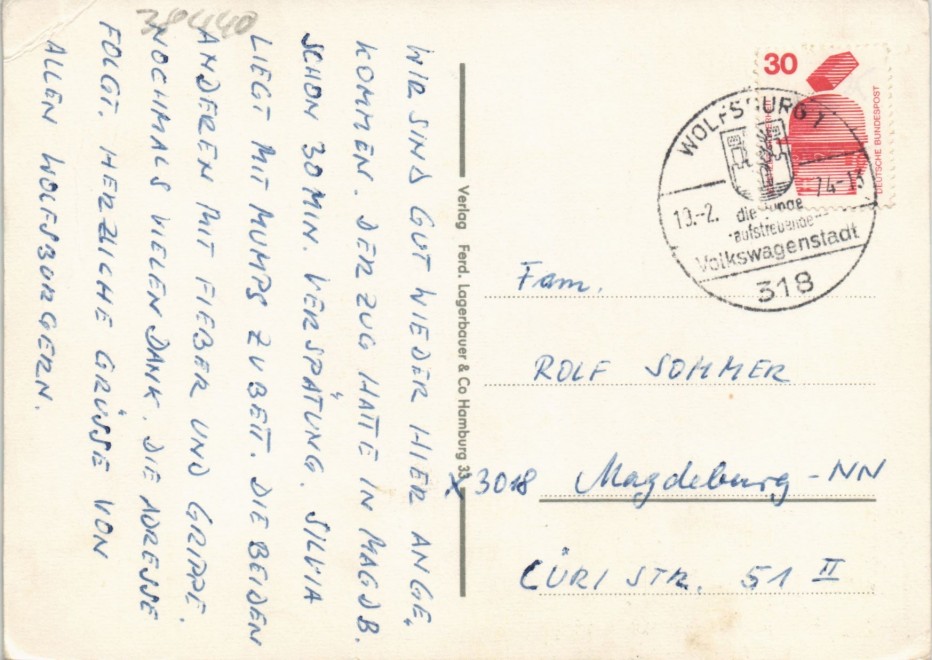 384440
WIR SIND GUT WIEDER HIER ANGE„
KOMMEN. DER ZUG HATTE IN MAGDB.
SCHON 30 MIN. VERSPÄTUNG. SILVIA
LIEGT MIT MUMPS ZU BETT. DIE BEIDEN
ANDEREN MIT FIEBER UND GRIPPE.
NOCHMALS VIELEN DANK. DIE ADRESSE
FOLGT. HERZLICHE GRÜSSE VON
ALLEN WOLFSBURGERN.
Verlag Ferd. Lagerbauer & Co Hamburg 33
30
DEUTSCHE BUNDESPOST
WOLFSBURG 1
10.-2. 74-13
die junge
"aufstrebende"
Volkswagenstadt
318
Fam.
ROLF SOMMER
X 3018 Magdeburg-NN
CÜRI STR. 51 II